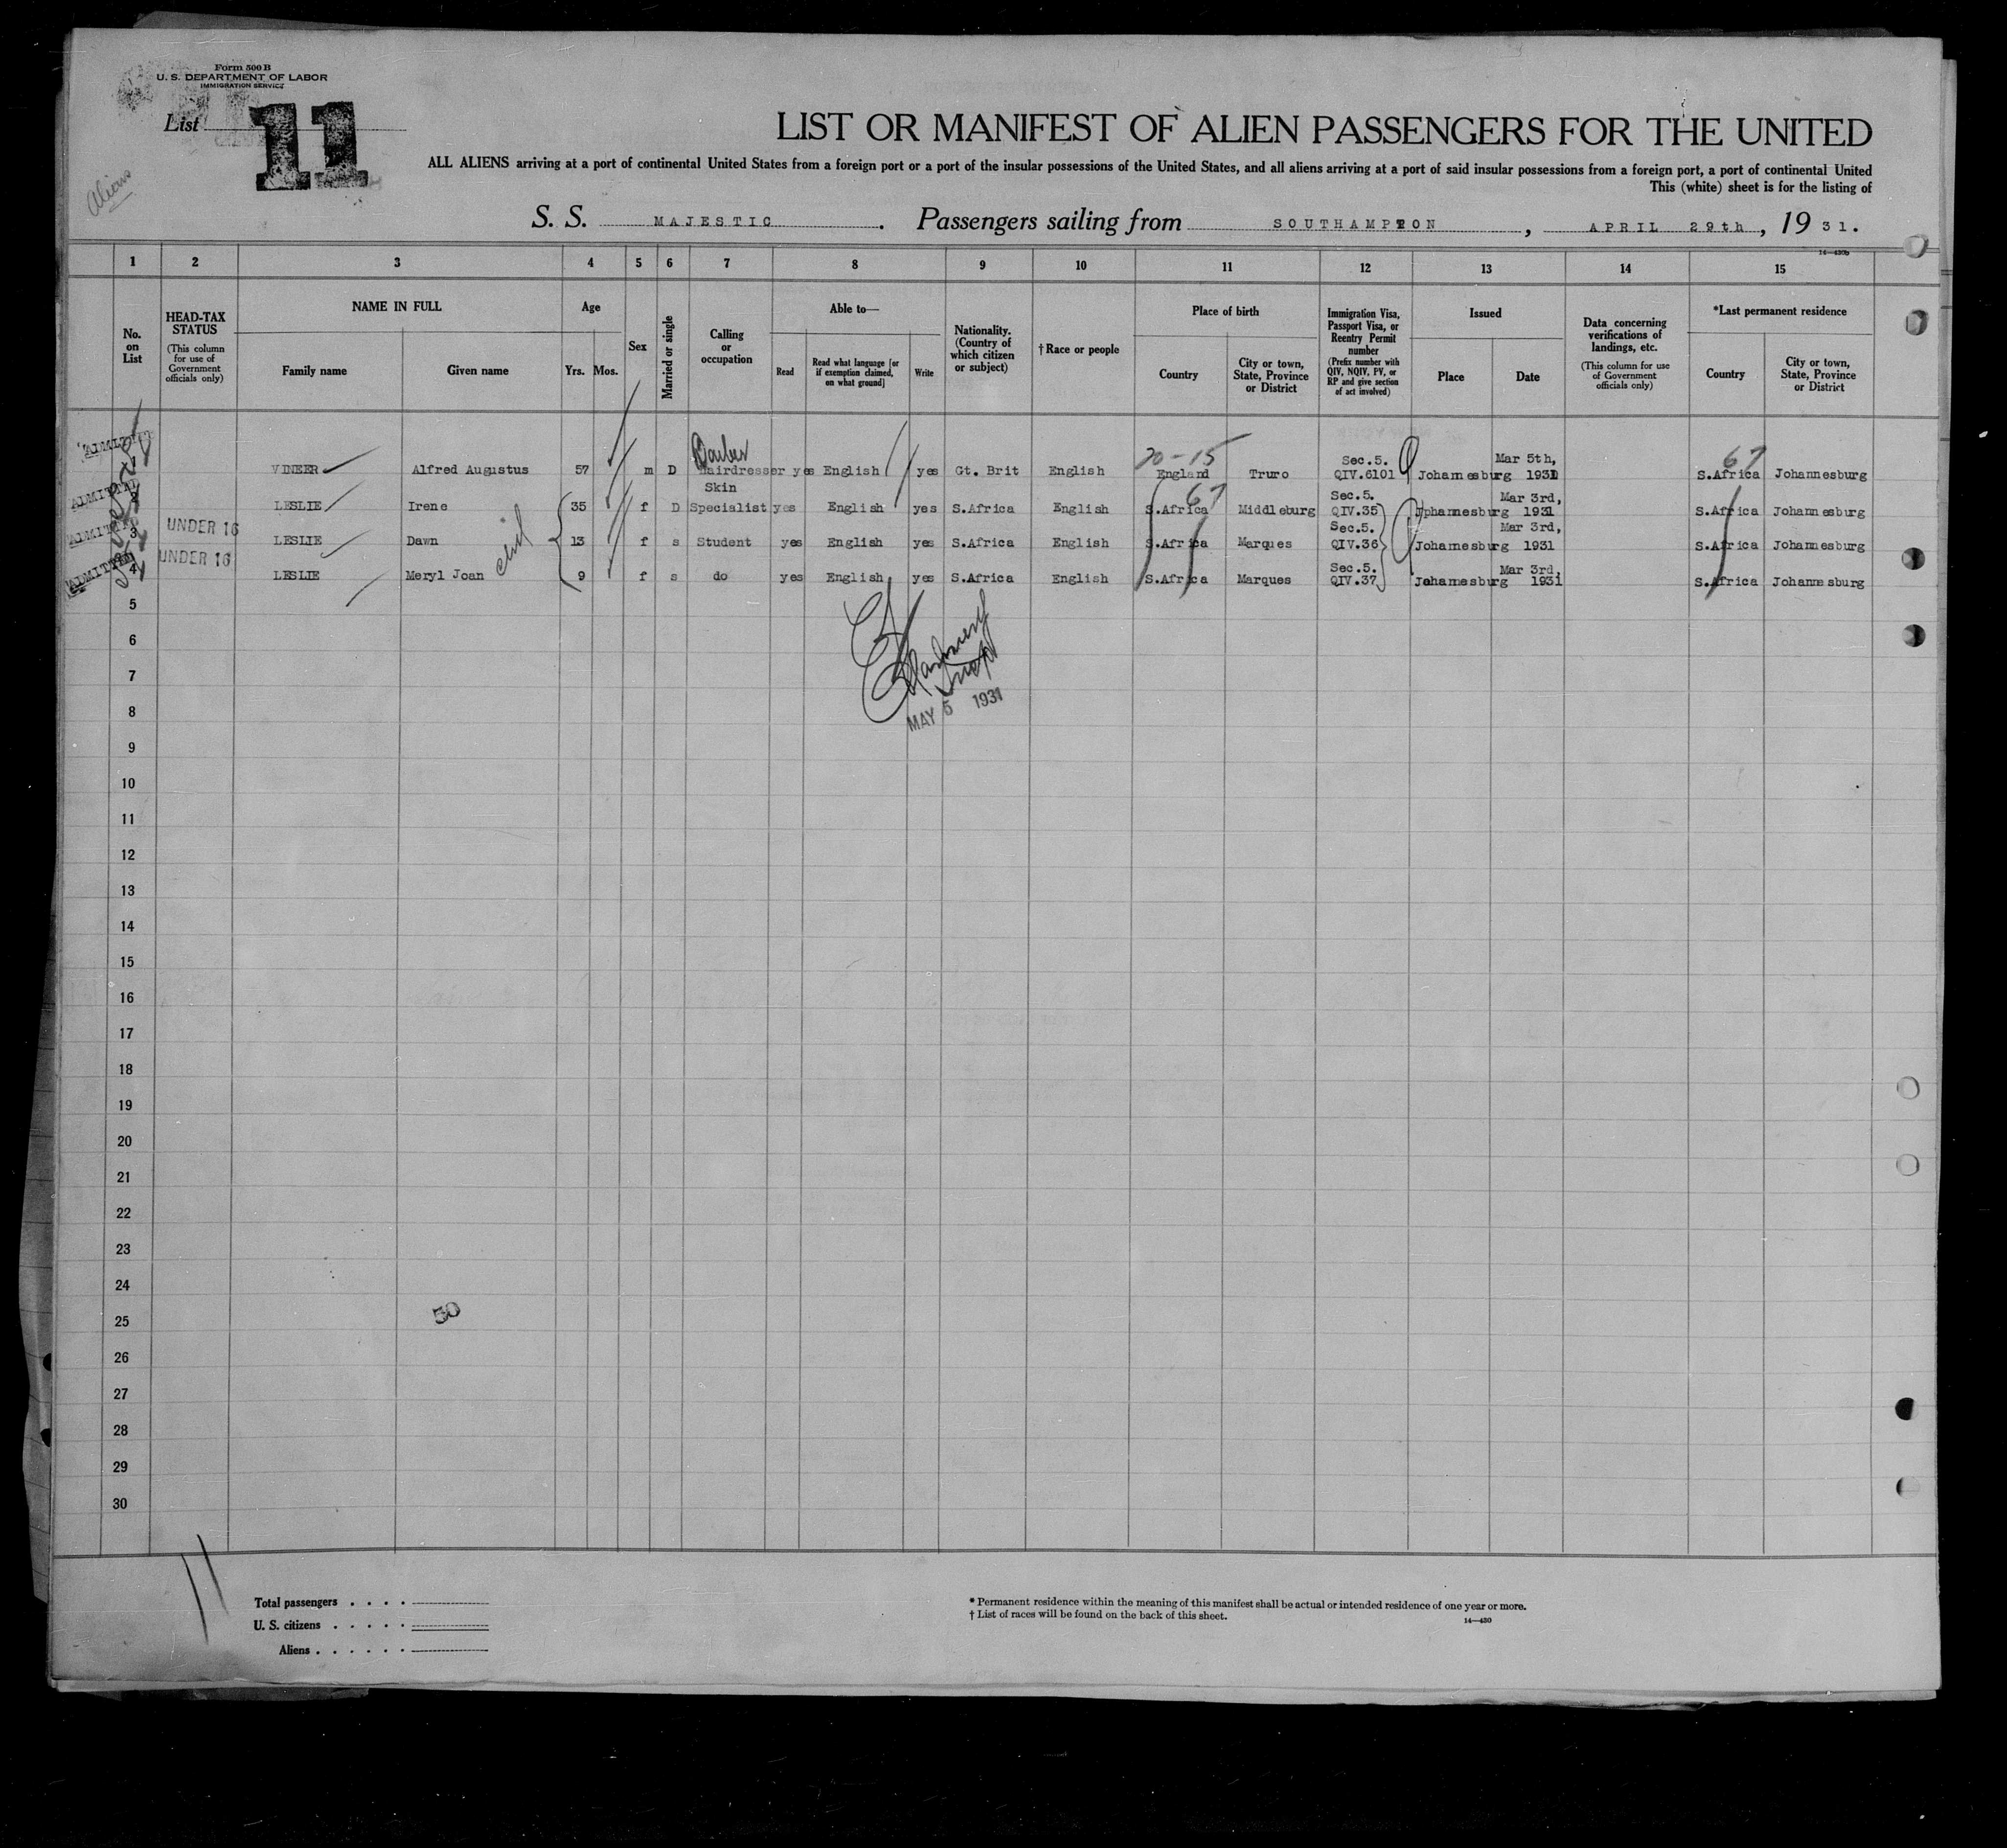 Form 500 B
U. S. DEPARTMENT OF LABOR
IMMIGRATION SERVICE
List 11
Aliens
LIST OR MANIFEST OF ALIEN PASSENGERS FOR THE UNITED
ALL ALIENS arriving at a port of continental United States from a foreign port or a port of the insular possessions of the United States, and all aliens arriving at a port of said insular possessions from a foreign port, a port of continental United
This (white) sheet is for the listing of
S. S. MAJESTIC. Passengers sailing from SOUTHAMPTON, APRIL 29th, 1931.
14—430b
1 2 3 4 5 6 7 8 9 10 11 12 13 14 15
No. on List
HEAD-TAX STATUS (This column for use of Government officials only)
NAME IN FULL
Family name Given name
Age
Yrs. Mos.
Sex
Married or single
Calling or occupation
Able to—
Read Read what language [or if exemption claimed, on what ground] Write
Nationality. (Country of which citizen or subject)
†Race or people
Place of birth
Country City or town, State, Province or District
Immigration Visa, Passport Visa, or Reentry Permit number (Prefix number with QIV, NQIV, PV, or RP and give section of act involved)
Issued
Place Date
Data concerning verifications of landings, etc. (This column for use of Government officials only)
*Last permanent residence
Country City or town, State, Province or District
ADMITTED 1 VINEER Alfred Augustus 57 m D Barber Hairdresser yes English yes Gt. Brit English 20-15 England Truro Sec.5. QIV.6101 Johannesburg Mar 5th, 1931 67 S.Africa Johannesburg
ADMITTED 2 LESLIE Irene 35 f D Skin Specialist yes English yes S.Africa English 67 S.Africa Middleburg Sec.5. QIV.35 Johannesburg Mar 3rd, 1931 S.Africa Johannesburg
ADMITTED 3 UNDER 16 LESLIE Dawn 13 f s Student yes English yes S.Africa English S.Africa Marques Sec.5. QIV.36 Johannesburg Mar 3rd, 1931 S.Africa Johannesburg
ADMITTED 4 UNDER 16 LESLIE Meryl Joan 9 f s do yes English yes S.Africa English S.Africa Marques Sec.5. QIV.37 Johannesburg Mar 3rd, 1931 S.Africa Johannesburg
5
6
7
8
MAY 5 1931
9
10
11
12
13
14
15
16
17
18
19
20
21
22
23
24
25
50
26
27
28
29
30
11
Total passengers . . . .
U. S. citizens . . . . .
Aliens . . . . . .
* Permanent residence within the meaning of this manifest shall be actual or intended residence of one year or more.
† List of races will be found on the back of this sheet.
14—430